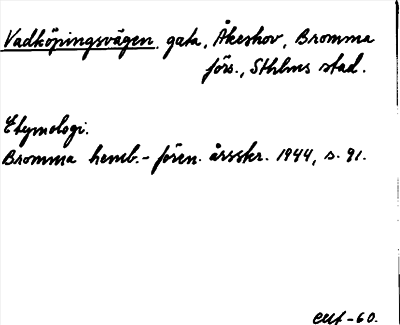 Vadköpingsvägen, gata, Åkeshov, Bromma
förs., Sthlms stad.
Etymologi.
Bromma hemb.-fören. årsskr. 1944, s. 91.
-60.